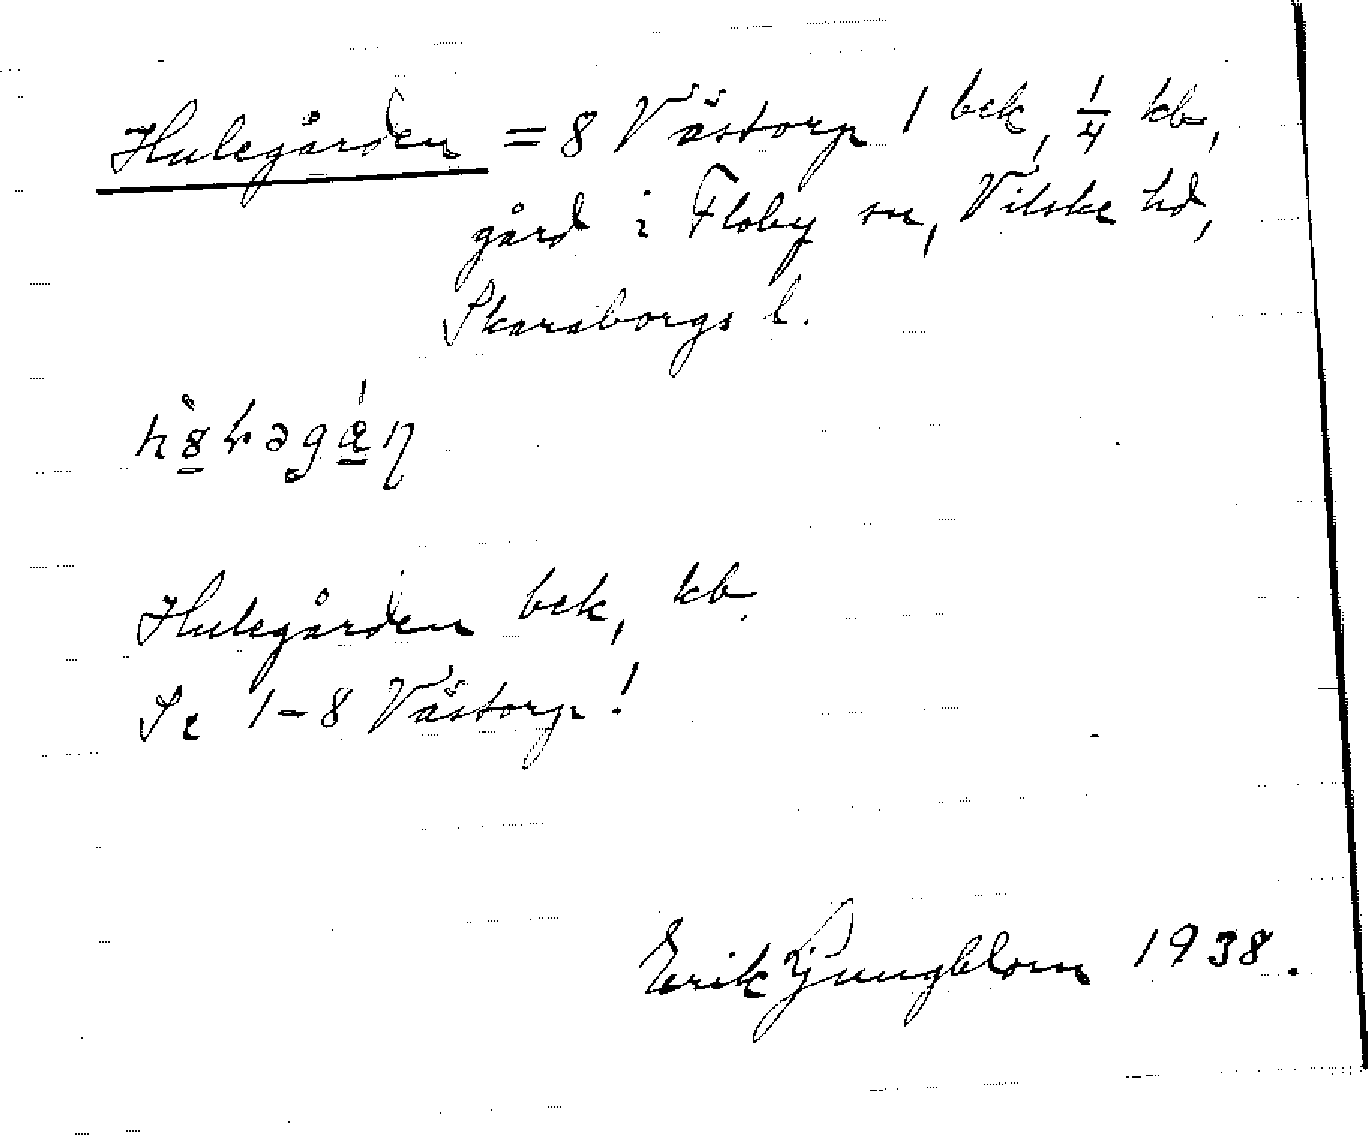 Hulegården = 8 Västorp 1 bek, 1/4 kb,
gård i Floby sn, Vilske hd,
Skaraborgs l.
Hulegården bek, kb.
Se 1-8 Västorp!
Erik Ljungblom 1938.